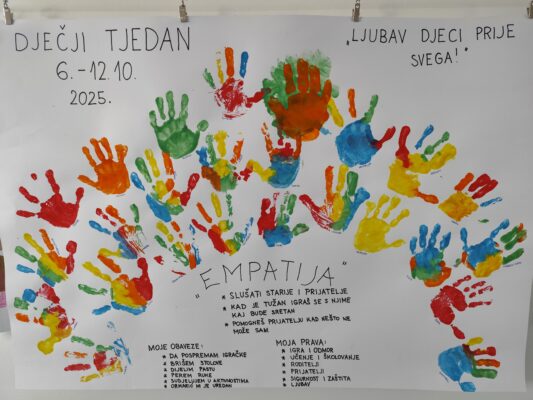 DJEČJI TJEDAN
6.-12.10.
2025.
„LJUBAV DJECI PRIJE
SVEGA!"
"EMPATIJA"
* SLUŠATI STARIJE I PRIJATELJE
* KAD JE TUŽAN IGRAŠ SE S NJIME
KAJ BUDE SRETAN
* POMOGNEŠ PRIJATELJU KAD NEŠTO NE
MOŽE SAM
MOJE OBAVEZE:
* DA POSPREMAM IGRAČKE
* BRIŠEM STOLOVE
* DIJELIM PASTU
* PEREM RUKE
* SUDJELUJEM U AKTIVNOSTIMA
* ORMARIĆ MI JE UREDAN
MOJA PRAVA:
* IGRA I ODMOR
* UČENJE I ŠKOLOVANJE
* RODITELJI
* PRIJATELJI
* SIGURNOST I ZAŠTITA
* LJUBAV